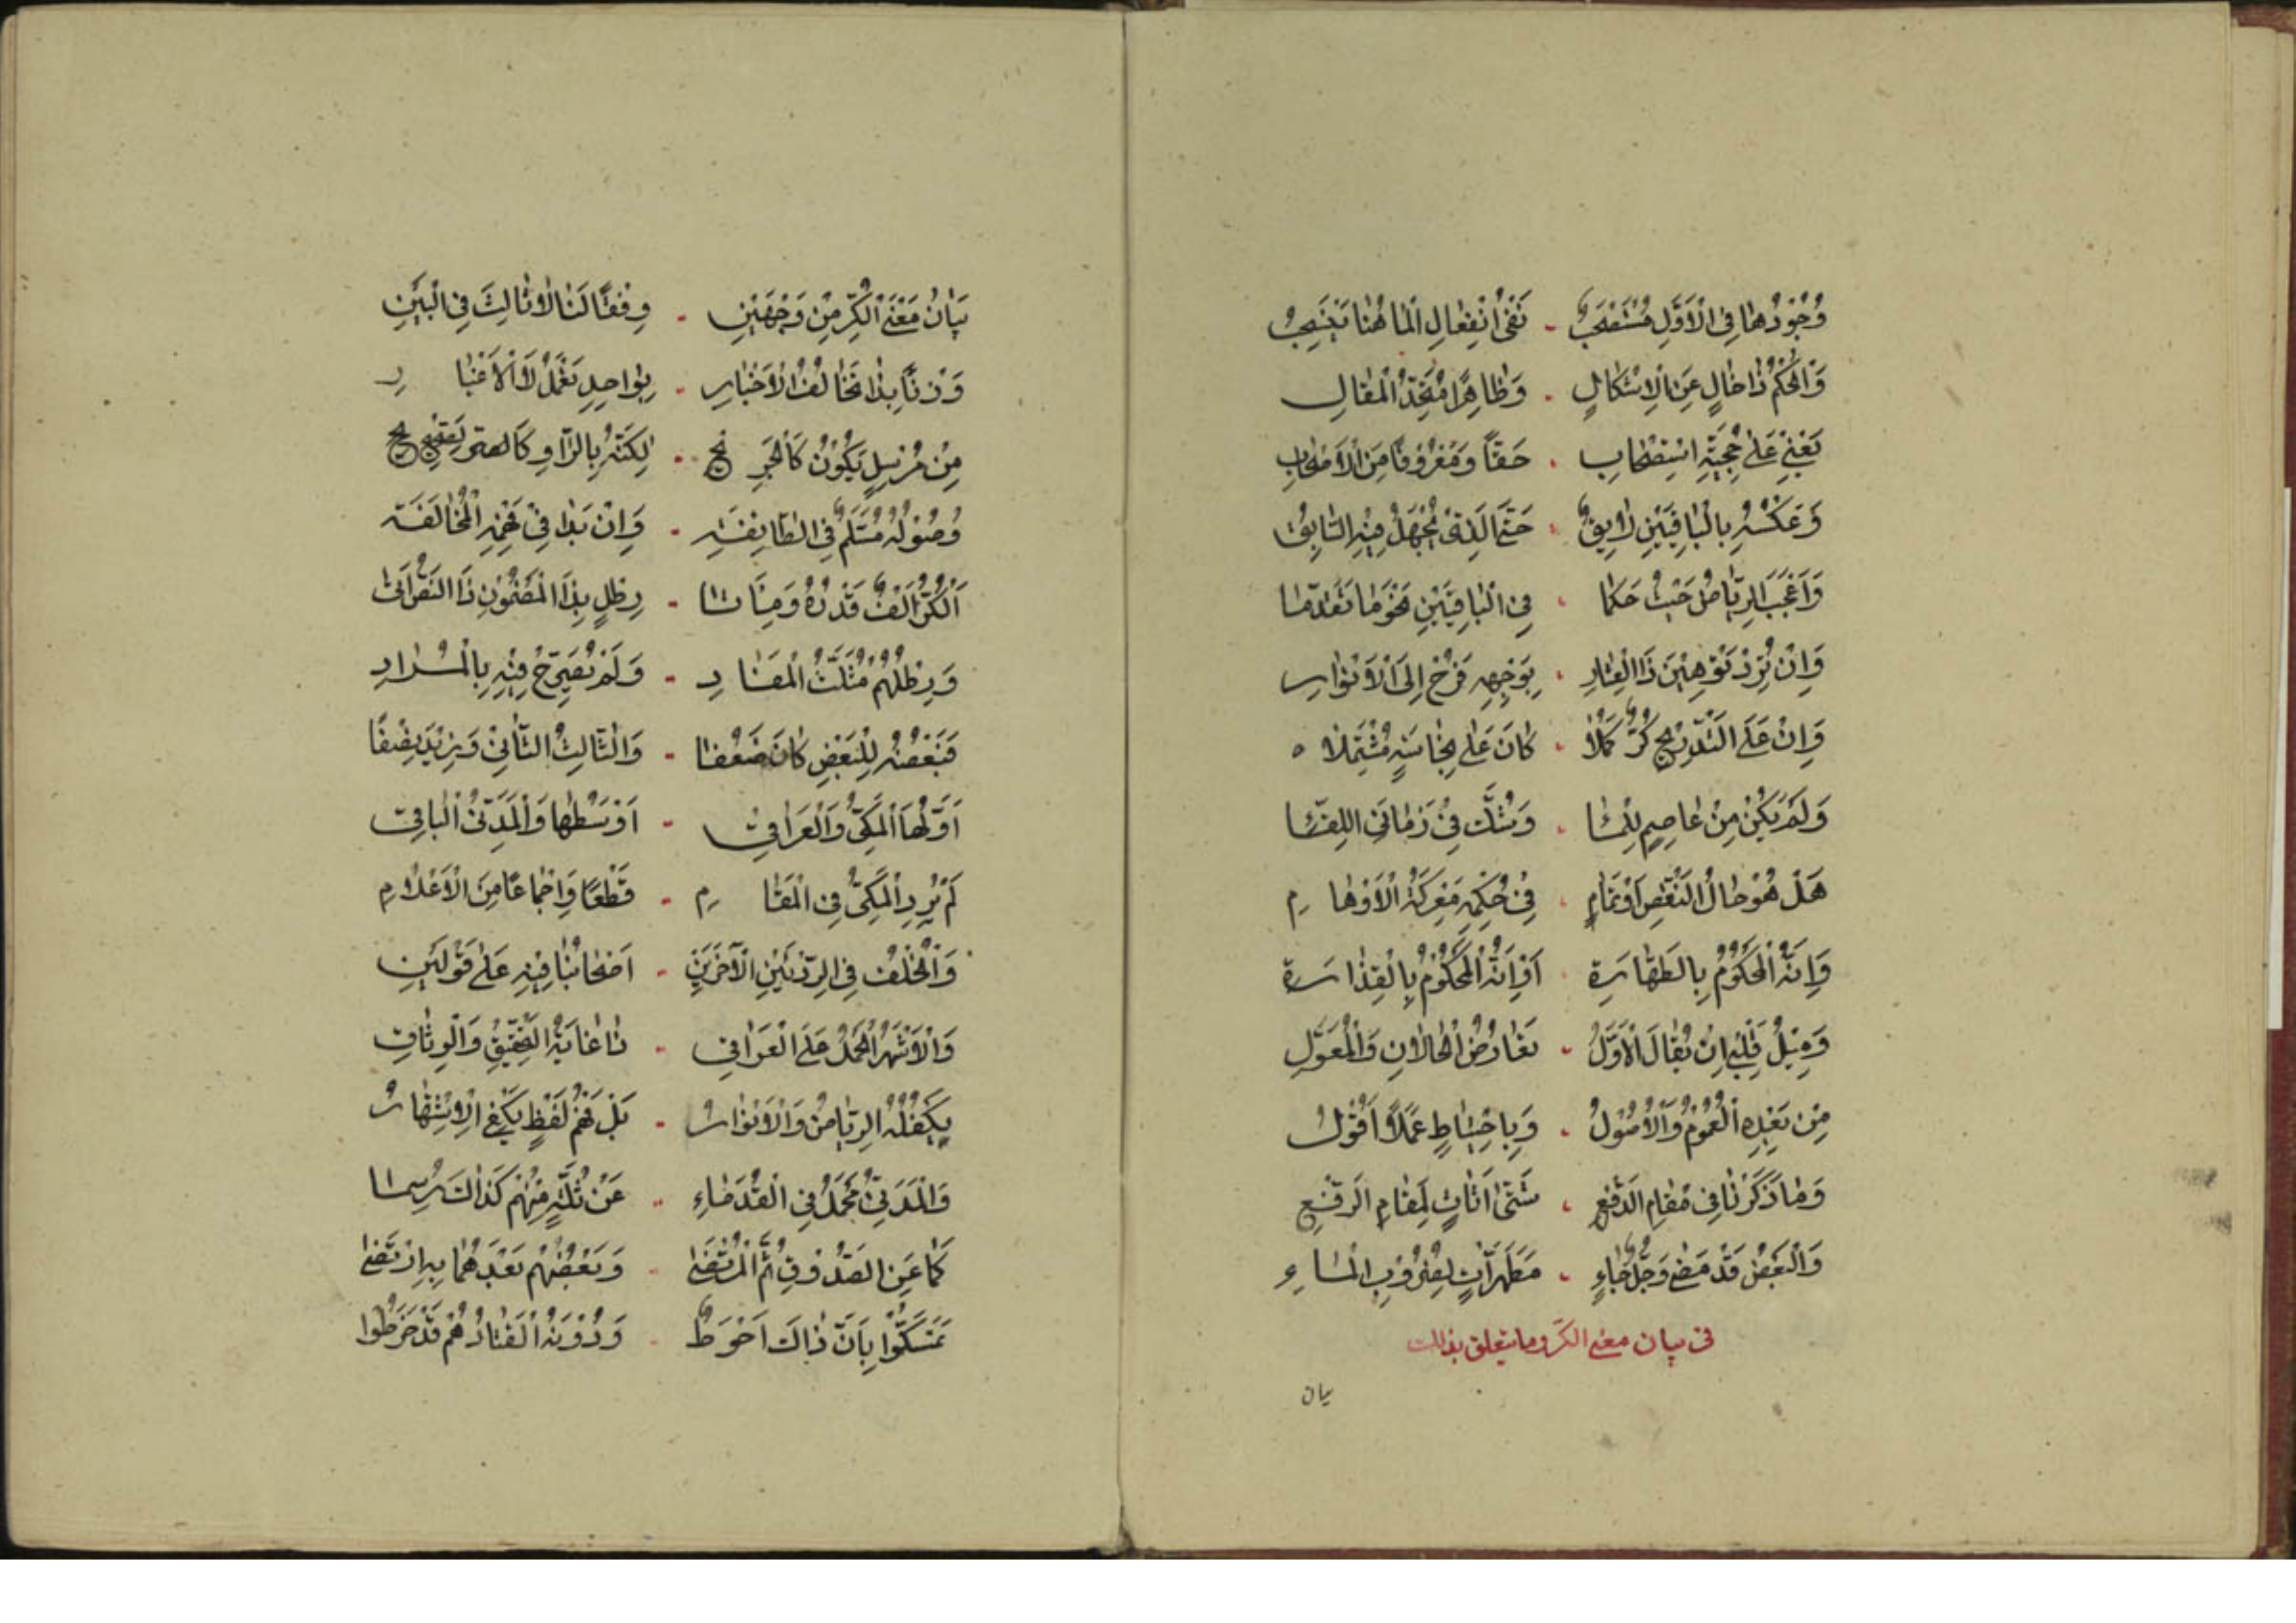 وُجُودُهَا فِي الْأَوَّلِ مُسْتَصْحَبٌ - نَفْيُ انْفِعَالِ الْمَا هُنَا يَنْسَحِبُ
وَالْحُكْمُ ذَا خَالٍ عَنِ الْإِشْكَالِ - وَظَاهِرًا مُتَّحِدُ الْمَقَالِ
يَعْنِي عَلَى حُجِّيَّةِ اسْتِصْحَابِ - حَقًّا وَمَعْرُوفًا مِنَ الْأَصْحَابِ
وَعَكْسُهُ بِالْبَاقِيَيْنِ لَايِقٌ - حَتْمًا لَدَى يُجْهَلُ فِيهِ السَّابِقُ
وَأَعْجَبَ الرِّيَاضُ حَيْثُ حَكَمَا - فِي الْبَاقِيَيْنِ نَحْوَ مَا تَقَدَّمَا
وَإِنْ تُرِدْ تَوْهِينَ ذَا الْعِثَارِ - بِوَجْهِهِ فَرُحْ إِلَى الْأَنْوَارِ
وَإِنْ عَلَى التَّدْرِيجِ كُرٌّ كَمُلَا - كَانَ عَلَى نَجَاسَةٍ مُشْتَمِلَا
وَلَمْ يَكُنْ مِنْ عَاصِمٍ لِلْمَاءِ - وَشُكَّ فِي زَمَانَيِ اللِّقَاءِ
هَلْ هُوَ حَالُ النَّقْصِ أَوْ تَمَامِ - فِي حُكْمِهِ مَعْرَكَةُ الْأَوْهَامِ
وَإِنَّهُ الْمَحْكُومُ بِالطَّهَارَةِ - أَوْ أَنَّهُ الْمَحْكُومُ بِالْقَذَارَةِ
وَمِيْلُ قَلْبِي أَنْ يُقَالَ الْأَوَّلُ - تَعَارُضُ الْحَالَانِ وَالْمُعَوَّلِ
مِنْ بَعْدِهِ الْعُمُومُ وَالْأُصُولُ - وَبِاحْتِيَاطٍ عَمَلًا أَقُولُ
وَمَا ذَكَرْنَا فِي مَقَامِ الدَّفْعِ - شَتَّى أَتَاتٍ لِمَقَامِ الرَّفْعِ
وَالْبَعْضُ قَدْ مَضَى وَجُلٌّ جَاءٍ - مُطَهِّرَاتٍ لِضُرُوبِ الْمَاءِ
في بيان معنى الكر وما يتعلق بذلك
بيان
بَيَانُ مَعْنَى الْكُرِّ مِنْ وَجْهَيْنِ - وِفْقًا لَنَا لَا ثَالِثَ فِي الْبَيْنِ
وَزْنًا بِذَا تَخَالُفُ الْأَخْبَارِ - بِوَاحِدٍ تَعْمَلُ لَا الْأَغْيَارِ
مِنْ مُرْسَلٍ يَكُونُ كَالْحَرِ نج - لِكَنَّهُ بِالرَّاوِ كَالصَّرِيحِ
وُصُولُهُ مُسَلَّمٌ فِي الطَّايِفَةِ - وَإِنْ بَدَا فِي فَهْمِهِ الْمُخَالَفَةُ
اَلْكُرُّ أَلْفٌ قَدْرُهُ وَمِئَاتَا - رِطْلٍ بِذَا الْمَضْمُونِ ذَا النَّصُّ أَتَى
وَرِطْلُهُمْ مُثَلَّثُ الْمَفَادِ - وَلَمْ يُصَرِّحْ فِيهِ بِالْمُرَادِ
فَبَعْضُهُ لِلْبَعْضِ كَانَ ضَعْفًا - وَالثَّالِثُ الثَّانِي وَيَزِيدُ نِصْفًا
أَوَّلُهَا الْمَكِّيُّ وَالْعِرَاقِي - أَوْسَطُهَا وَالْمَدَنِيُّ الْبَاقِي
لَمْ يُرِدِ الْمَكِّيَّ فِي الْمَقَامِ - قَطْعًا وَإِجْمَاعًا مِنَ الْأَعْلَامِ
وَالْخُلْفُ فِي الرِّطْلَيْنِ الْآخَرَيْنِ - أَصْحَابُنَا فِيهِ عَلَى قَوْلَيْنِ
وَالْأَشْهَرُ الْحَمْلُ عَلَى الْعِرَاقِي - ذَا غَايَةُ التَّحْقِيقِ وَالْوِثَاقِ
يَكْفُلُهُ الرِّيَاضُ وَالْأَنْوَارُ - بَلْ فَهْمُ لَفْظٍ يَكْفِي الْإِشْتِهَارُ
وَالْمَدَنِيُّ مَحْمَلُ فِي الْقُدَمَاءِ - عَنْ ثُلَّةٍ مِنْهُمْ كَذَا
كَمَا عَنِ الصَّدُوقِ ثُمَّ الْمُرْتَضَى - وَبَعْضُهُمْ بَعْدَهُمَا بِهِ ارْتَضَى
تَمَسَّكُوا بِأَنَّ ذَاكَ أَحْوَطُ - وَدُونَهُ الْقَتَادُ هُمْ قَدْ خَرَطُوا